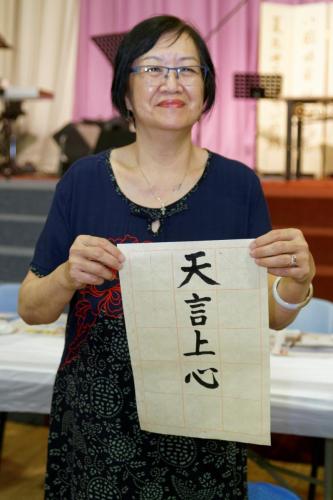 天言上心